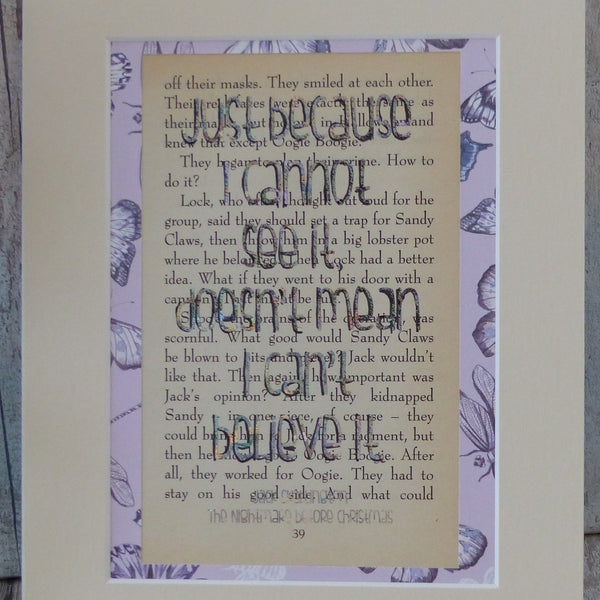 off their masks. They smiled at each other.
as
and
knew that except Oogie Boogie.
They began to plan their crime. How to
do it?
Lock, who often thought out loud for the
group, said they should set a trap for Sandy
Claws, then throw him in a big lobster pot
where he
Lock had a better
idea. What if they went to his door with a
was
scornful. What good would Sandy Claws
be blown to bits Jack wouldn't
like that. Then again, how important was
Jack's opinion? After they kidnapped
Sandy in one piece, of course – they
could bring him to Jack for a moment, but
then Oogie Boogie. After
all, they worked for Oogie. They had to
stay on his good side. And what could
39
Just because
I cannot
see it,
doesn't mean
I can't
believe it
The Nightmare Before Christmas